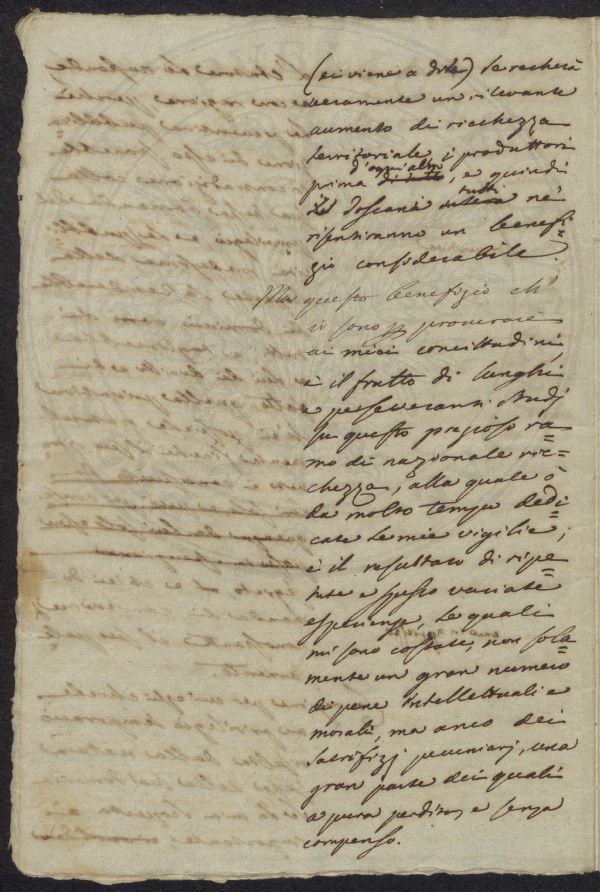 (ei viene a dire) Se recherà
veramente un rilevante
aumento di ricchezza
territoriale, i produttori
d'ogni altro
prima di tutto, e quindi
tutti
Toscana ne
risentiranno un benefi=
zio considerabile.
Ma questo benefizio ch'
io sono proccurare
ai miei concittadini,
è il frutto di lunghi
e perseveranti studj
su questo prezioso ra=
mo di nazionale ric=
chezza, alla quale ò
da molto tempo dedi=
cate le mie vigilie;
è il resultato di ripe=
tute e spesso variate
esperienze, le quali
mi sono costate, non sola=
mente un gran numero
di pene intellettuali e
morali, ma anco dei
sacrifizj pecuniarj, una
gran parte dei quali
a pura perdita, e senza
compenso.